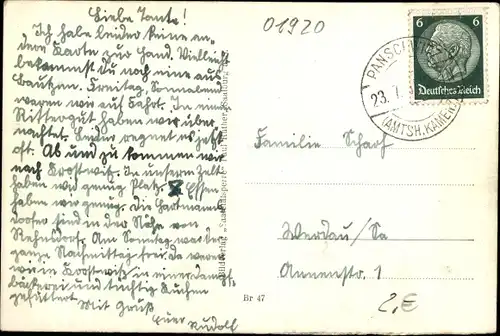 Liebe Tante!
Ich habe leider keine an-
dere Karte zur Hand. Vielleicht
bekommst Du noch eine aus
Bautzen. Freitag, Sonnabend
waren wir auf Fahrt. In einem
Rittergut haben wir über-
nachtet. Leider regnet es jetzt
oft. Ab und zu kommen wir
nach Krostwitz. In unserm Zelt
haben wir genug Platz. Essen
haben wir genug. Die
sind in der Nähe von
Rehnsdorf. Am Sonntag war der
ganze Nachmittag frei da waren
wir in Krostwitz in einer
bäckerei und tüchtig Kuchen
gefuttert.
Mit Gruß
Euer Rudolf
01920
6 6
Deutsches Reich
23. 7.
(AMTSH. KAMENZ)
Familie Scharf
Werdau/Sa
Annenstr. 1
Br 47
2,€